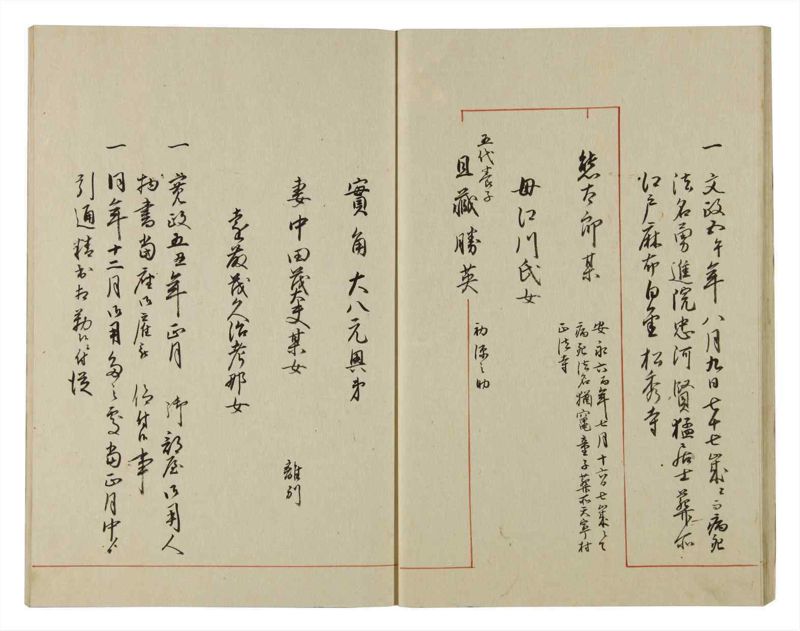 一 文政五午年八月九日七十七歳ニ而病死
法名勇進院忠河賢猛居士葬所
江戸麻布白金松秀寺
熊太郎某
安永六酉年七月十六日七歳ニ而
病死法名 童子葬所天寧村
正法寺
母江川氏女
五代養子
且蔵勝英
初源之助
實角大八元興弟
妻中田茂大夫某女
離別
後 茂久治孝 女
一 寛政五丑年正月 御部屋御用人
物書当座御雇被 仰付候事
一 同年十二月御用多之処当正月中ゟ
引通精出相勤候付